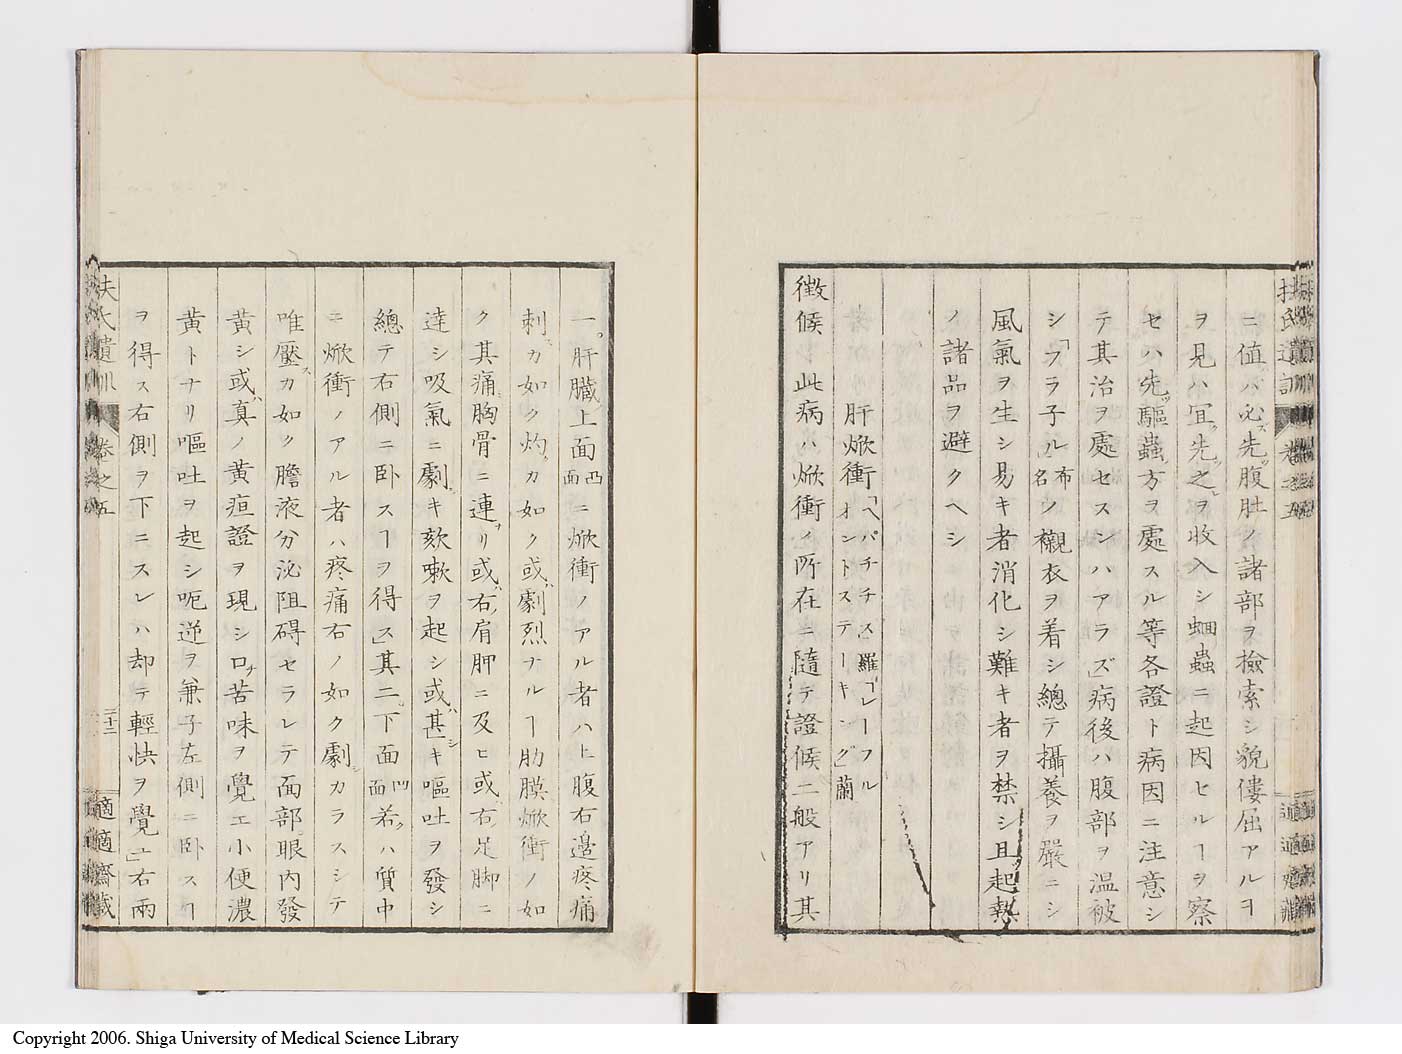 ニ値ハヽ必ス先ツ腹肚ノ諸部ヲ檢索シ貌僂屈アルヲ
ヲ見ハ宜ク先ツ之レヲ收入シ蛔蟲ニ起因セルヿヲ察
セハ先ツ驅蟲方ヲ處スル等各證ト病因ニ注意シ
テ其治ヲ處セスンハアラズ」病後ハ腹部ヲ温被
シ「フラ子ル」布名ノ襯衣ヲ着シ總テ攝養ヲ嚴ニシ
風氣ヲ生シ易キ者消化シ難キ者ヲ禁シ且ツ起熱
ノ諸品ヲ避クヘシ
肝焮衝「ヘパチチス」羅「レーフルオントステーキング」蘭
徴候 此病ハ焮衝ノ所在ニ隨テ證候二般アリ其
一。肝臓上面凸面ニ焮衝ノアル者ハ上腹右邉疼痛
刺スカ如ク灼クカ如ク或ハ劇烈ナルヿ肋膜焮衝ノ如
ク其痛胸骨ニ連ナリ或ハ右肩胛ニ及ヒ或ハ右足脚ニ
達シ吸氣ニ劇キ欬嗽ヲ起シ或ハ甚シキ嘔吐ヲ發シ
總テ右側ニ卧スヿヲ得ス」其二。下面凹面若クハ質中
ニ焮衝ノアル者ハ疼痛右ノ如ク劇シカラスシテ
唯壓スカ如ク膽液分泌阻碍セラレテ面部眼内發
黄シ或ハ真ノ黄疸證ヲ現シ口チ苦味ヲ覺エ小便濃
黄トナリ嘔吐ヲ起シ呃逆ヲ兼子左側ニ卧スヿ
ヲ得ス右側ヲ下ニスレハ却テ輕快ヲ覺ユ」右兩
扶氏遺訓 卷之五
二十三
適適齋藏
Copyright 2006. Shiga University of Medical Science Library